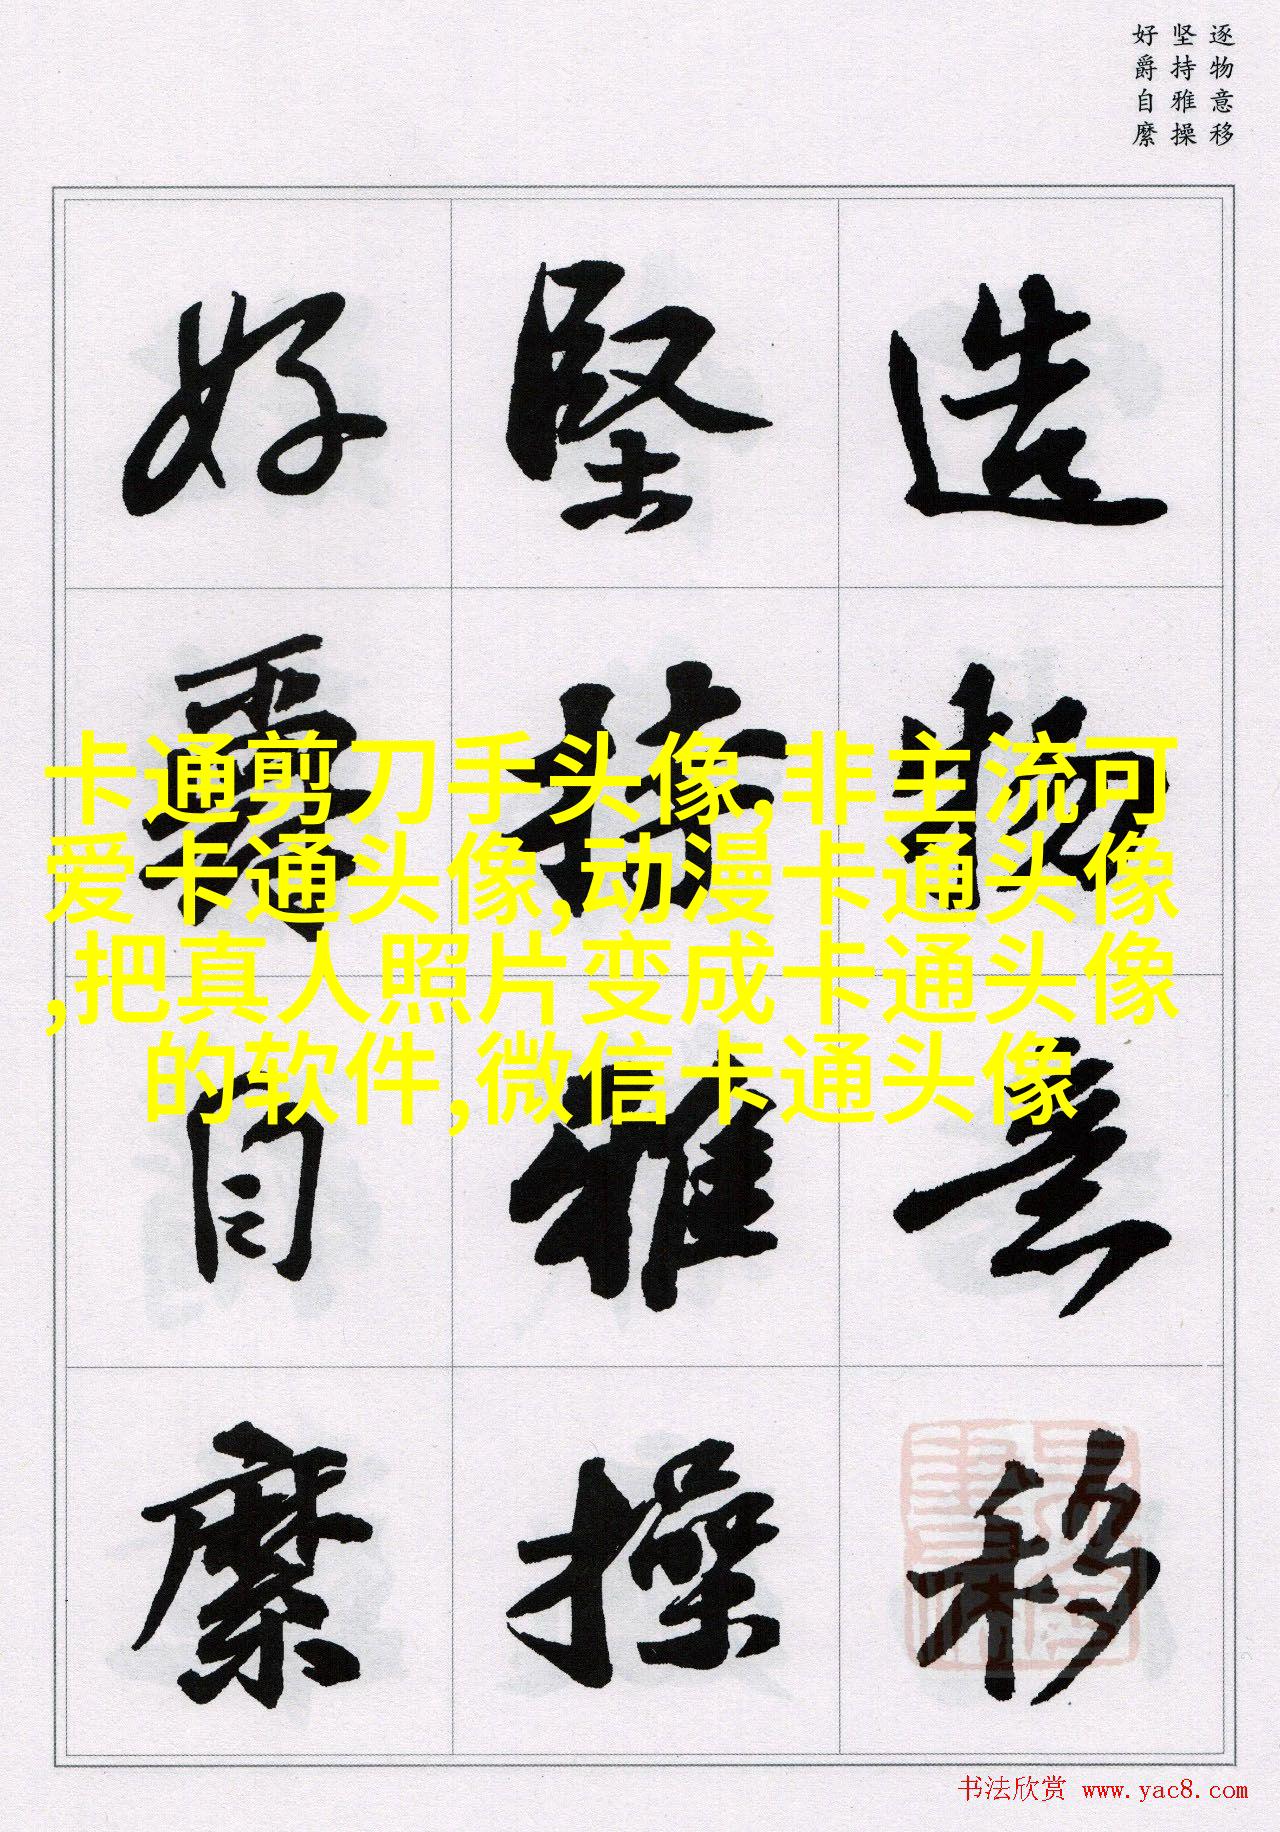 逐物意移
坚持雅操
好爵自縻
造物意移
堅持雅操
好爵自縻
卡通剪刀手头像,非主流可
爱卡通头像,动漫卡通头像
,把真人照片变成卡通头像
的软件,微信卡通头像
书法欣赏 www.yac8.com